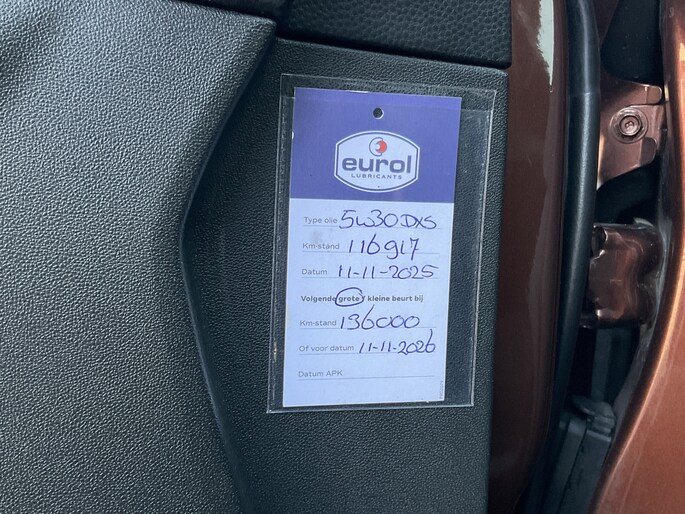 eurol
LUBRICANTS
Type olie 5W30 DXS
Km-stand 116917
Datum 11-11-2025
Volgende grote / kleine beurt bij
Km-stand 136000
Of voor datum 11-11-2026
Datum APK